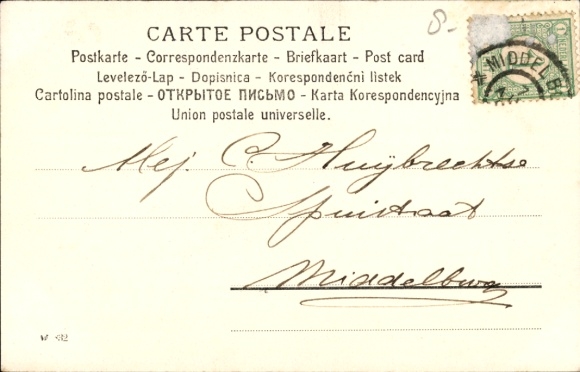 8-
CARTE POSTALE
Postkarte - Correspondenzkarte - Briefkaart - Post card
Levelező-Lap - Dopisnica - Korespondenčni listek
Cartolina postale - ОТКРЫТОЕ ПИСЬМО - Karta Korespondencyjna
Union postale universelle.
MIDDELB
Mej. C. Huijbrechtse
Spuistraat
Middelburg